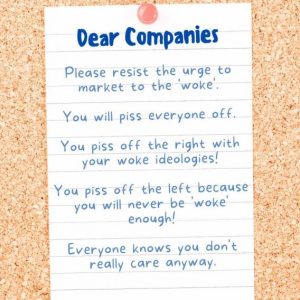 Dear Companies
Please resist the urge to
market to the 'woke'.
You will piss everyone off.
You piss off the right with
your woke ideologies!
You piss off the left because
you will never be 'woke'
enough!
Everyone knows you don't
really care anyway.